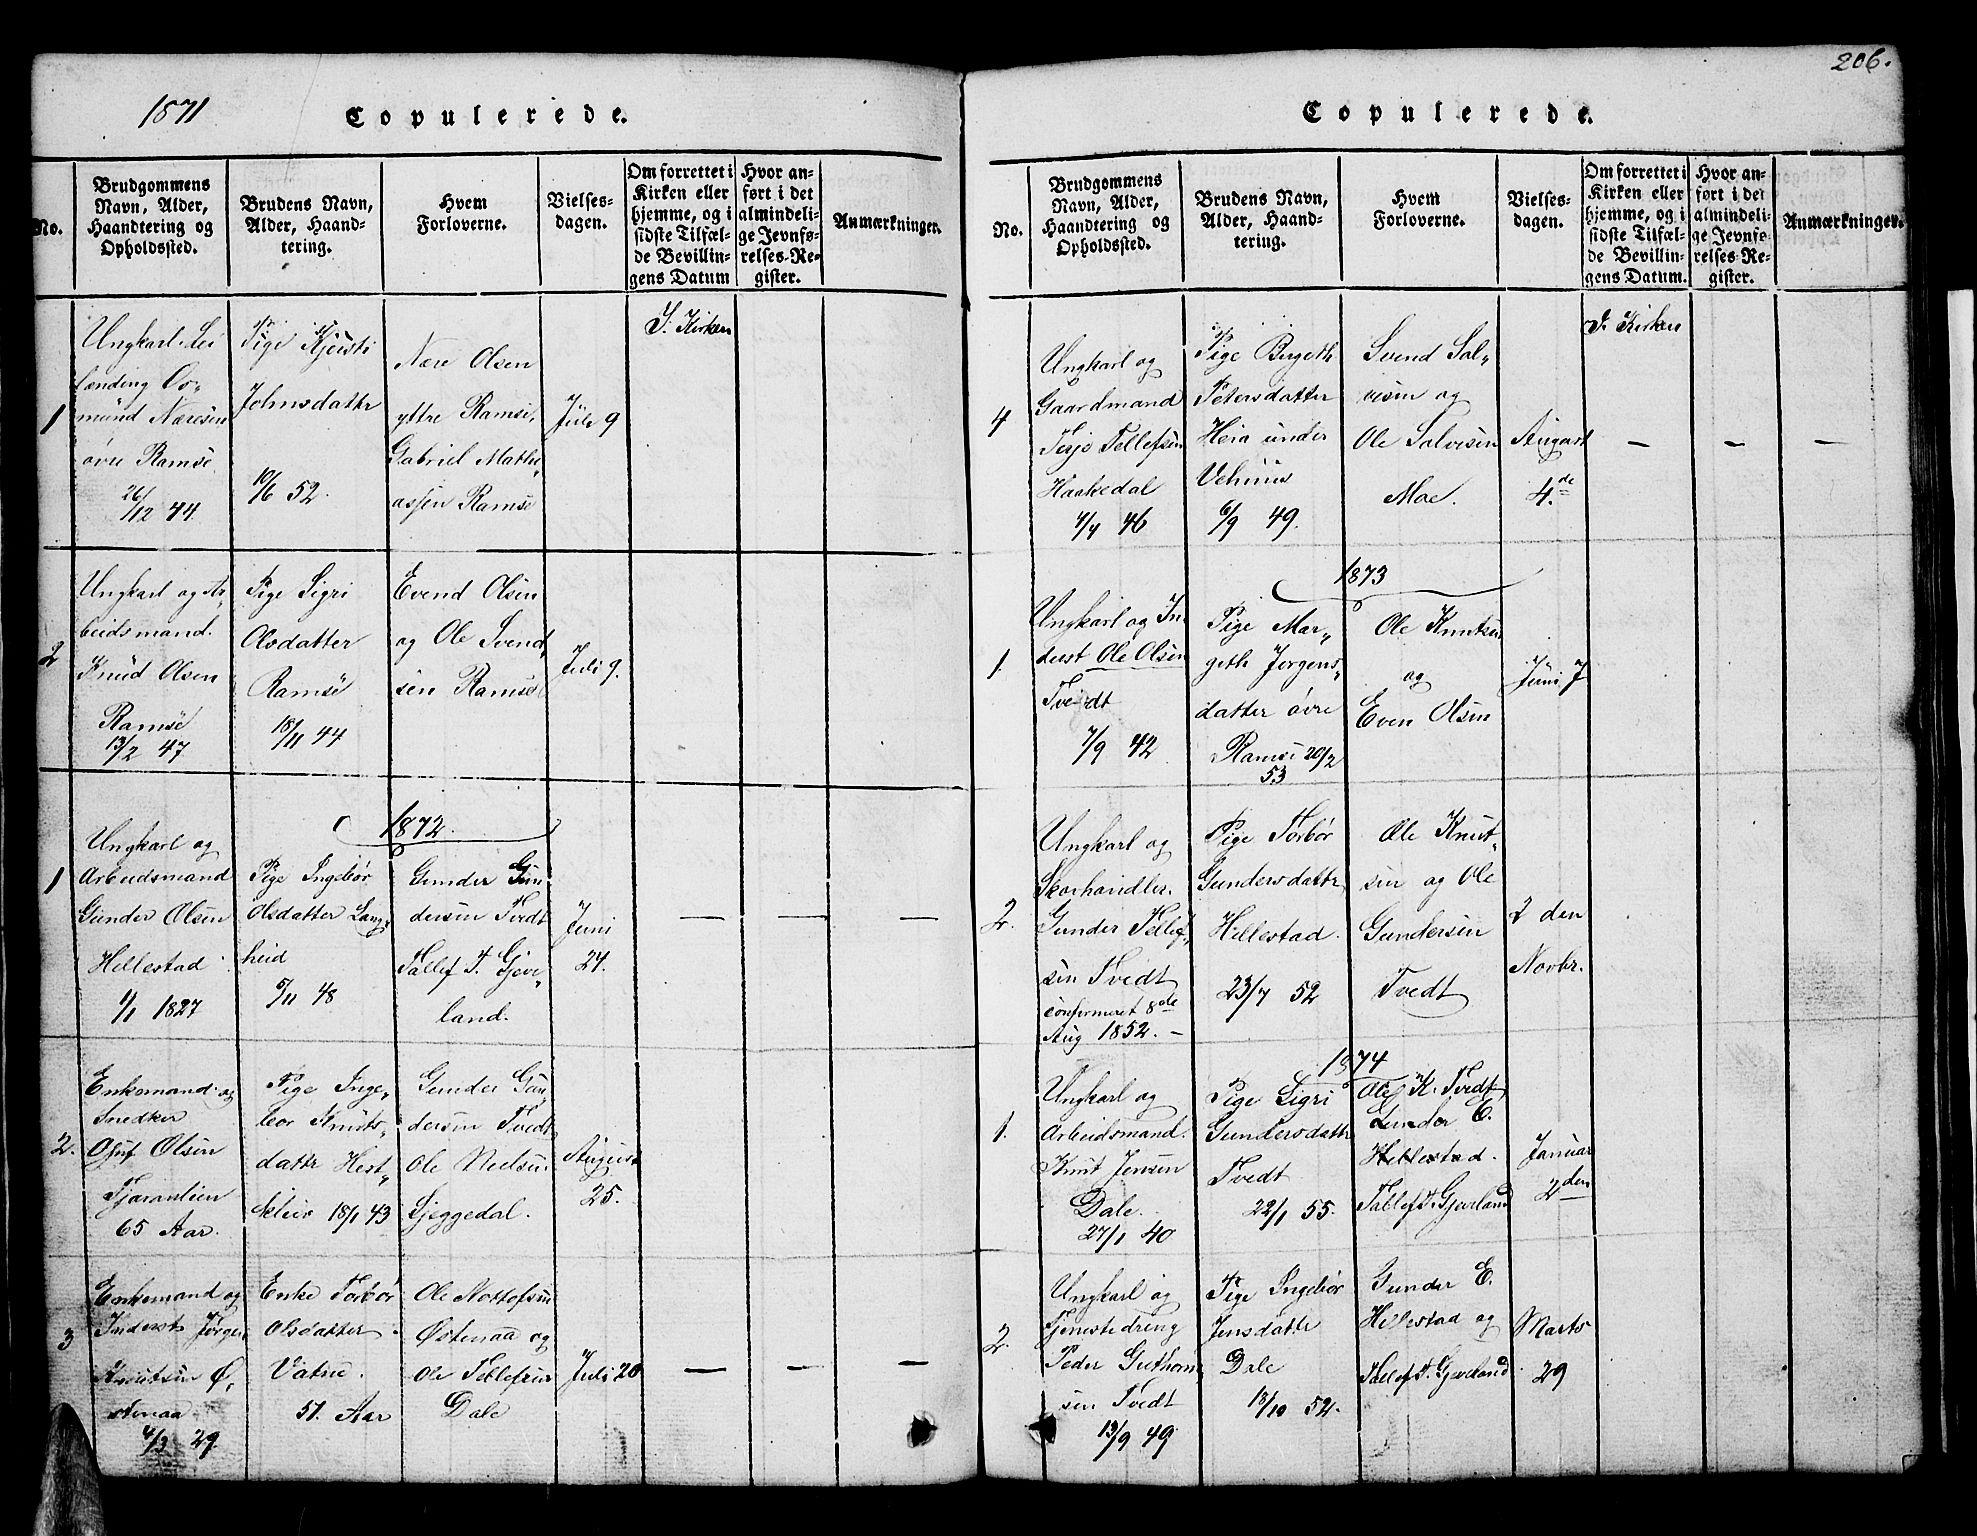 206.
1871
Copulerede.
No.
Brudgommens
Navn, Alder,
Haandtering og
Opholdssted.
Brudens Navn,
Alder, Haand-
tering.
Hvem
Forloverne.
Vielses-
dagen.
Om forrettet i
Kirken eller
hjemme, og i
sidste Tilfæl-
de Bevillin-
gens Datum
Hvor an-
ført i det
almindeli-
ge Jevnfø-
relses-Re-
gister.
Anmærkninger.
1
Ungkarl Lei
lænding
mund Næresen
øvre Ramse
26/12 44.
Pige Kjersti
Johnsdattr
10/6 52.
Nære Olsen
yttre Ramse,
Gabriel Mathi
assen Ramse
Juli 9
I. Kirken
2
Ungkarl og Ar-
beidsmand.
Knud Olsen
Ramse
13/2 47
Pige Sigri
Olsdatter
Ramse
18/11 44
Evend Olsen
og Ole Svend-
sen Ramse
Juli 9.
1872.
1
Ungkarl og
Arbeidsmand
Gunder Olsen
Hellestad
1/1 1827
Pige Ingebor
Olsdatter Laug-
heid
5/11 48
Gunder Gun
dersen Tvedt
Tallef T. Gjeve-
land.
Juni
24.
2.
Enkemand og
Snedker
Olsen
65 Aar.
Pige Inge-
bor Knuts-
dattr Hest-
18/1 43
Gunder Gun-
dersen Tvedt
Ole Nielsen
Ljeggedal.
August
25.
3
Enkemand og
Inderst Jørgen
Knutsen Ø-
stenaa
4/3 29.
Enke Torbor
Olsdatter
Vatne.
51. Aar
Ole Nottofsen
Østenaa og
Ole Tellefsen
Dale
Juli 20
Copulerede.
No.
Brudgommens
Navn, Alder,
Haandtering og
Opholdssted.
Brudens Navn,
Alder, Haand-
tering.
Hvem
Forloverne.
Vielses-
dagen.
Om forrettet i
Kirken eller
hjemme, og i
sidste Tilfæl-
de Bevillin-
gens Datum.
Hvor an-
ført i det
almindeli-
ge Jevnfø-
relses-Re-
gister.
Anmærkninger.
4
Ungkarl og
Gaardmand
Terjo Tellefsen
Haakedal
4/4 46
Pige Bergeth
Petersdatter
Heia under
Vehuus
6/9 49.
Svend Sal-
vesen og
Ole Salvesen
Moe.
August
4.de
I. Kirken
1873
1.
Ungkarl og In-
derst Ole Olsen
Tvedt
7/9 42
Pige Mar-
geth Jørgens-
datter øvre
Ramse 20/2
53
Ole Knutsen
og
Even Olsen
Juni 7
2.
Ungkarl og
Skorhandler
Gunder Tellef-
sen Tvedt
confirmeret 8de
Aug 1852.
Pige Torbor
Gundersdattr
Hellestad.
23/7 52
Ole Knut-
sen og Ole
Gundersen
Tvedt
2 den
Novbr.
1874
1.
Ungkarl og
Arbeidsmand.
Knut Jensen
Dale.
27/1 40
Pige Sigri
Gundersdattr
Tvedt
22/1 55.
Ole K. Tvedt
Gunder E.
Hellestad.
Tallef T. Gjeveland
Januar
2den
2.
Ungkarl og
Tjenestedreng
Peder Guthorm
sen Tvedt
13/9 49.
Pige Ingebor
Jensdattr
Dale
18/10 52.
Gunder E.
Hellestad og
Tallef T. Gjeveland
Marts
29